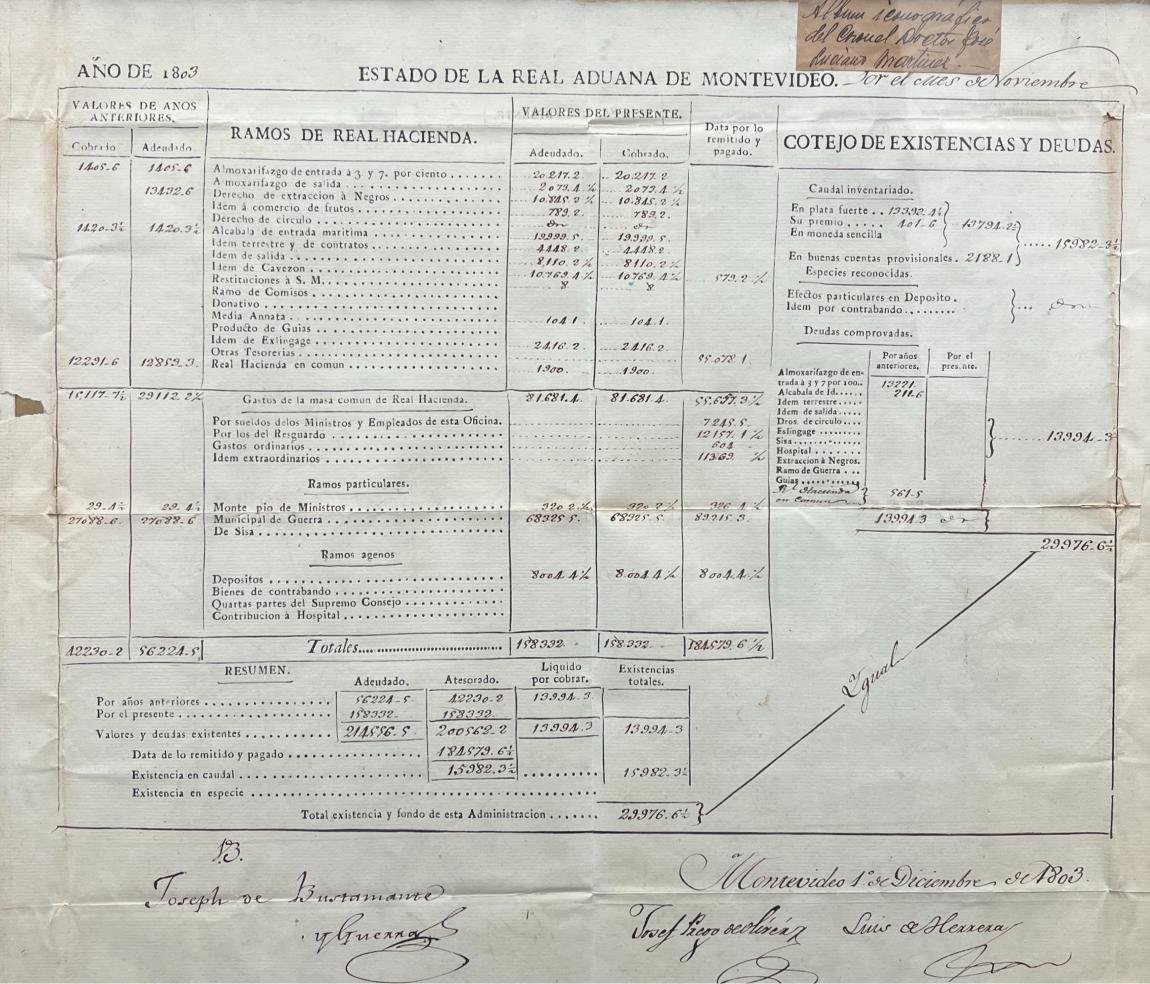 Album iconográfico
del Coronel Doctor José
Luciano Martinez.
AÑO DE 1803
ESTADO DE LA REAL ADUANA DE MONTEVIDEO. Por el Mes de Noviembre
VALORES DE AÑOS
ANTERIORES.
Cobrado Adeudado
RAMOS DE REAL HACIENDA.
VALORES DEL PRESENTE.
Adeudado. Cobrado.
Data por lo
remitido y
pagado.
1405-6 1405-6 Almoxarifazgo de entrada à 3 y 7. por ciento 20.217.2 20.217.2
13432.6 Almoxarifazgo de salida 2079.4½ 2079.4½
Derecho de extraccion à Negros 10.845.2½ 10.845.2½
Idem à comercio de frutos 789.2. 789.2.
Derecho de circulo
1420-3½ 1420-3½ Alcabala de entrada maritima 19.999.5. 19.999.5.
Idem terrestre y de contratos 4448.2 4448.2
Idem de salida 8,110.2½ 8110.2½
Idem de Cavezon 10,769.4½ 10,769.4½
Restituciones à S. M. 8. 8. 579,2½
Ramo de Comisos
Donativo
Media Annata 104.1. 104.1.
Producto de Guias
Idem de Exlingage 2416.2. 2416.2.
Otras Tesorerias 55.078.1.
12291-6 12853.3 Real Hacienda en comun 1900. 1900.
15,117-7½ 29112.2½ Gastos de la masa comun de Real Hacienda. 81.681.4. 81.681.4. 55,657.3½
Por sueldos delos Ministros y Empleados de esta Oficina. 7245.5.
Por los del Resguardo 12157.1½
Gastos ordinarios 604
Idem extraordinarios 11369. ½
Ramos particulares.
29.4½ 29.4½ Monte pio de Ministros 320.2.½ 320.2½ 326.4½
27088-6 27088-6 Municipal de Guerra 68325 5. 68325.5. 89215.3.
De Sisa
Ramos agenos
Depositos 8004.4½ 8.004.4½ 8004.4.½
Bienes de contrabando
Quartas partes del Supremo Consejo
Contribucion à Hospital
42230-2 56224-5 Totales 158332. 158332. 184579.6½
COTEJO DE EXISTENCIAS Y DEUDAS.
Caudal inventariado.
En plata fuerte .. 13392.4½
Su premio .... 401-6
En moneda sencilla
13794.2½
15982-3½
En buenas cuentas provisionales. 2188.1
Especies reconocidas.
Efectos particulares en Deposito.
Idem por contrabando
Deudas comprovadas.
Por años
anteriores.
Por el
presente.
Almoxarifazgo de en-
trada à 3 y 7 por 100.. 13221.
Alcabala de Id. 211.6
Idem terrestre
Idem de salida
Dros. de circulo
Eslingage 13994-3
Sisa
Hospital
Extraccion à Negros.
Ramo de Guerra
Guias
Rl. Hacienda
en Comun 561-5
13994.3
29976-6½
RESUMEN.
Adeudado. Atesorado. Liquido
por cobrar. Existencias
totales.
Por años anteriores 56224-5 42230-2 13994.3
Por el presente 158332. 158332.
Valores y deudas existentes 214556.5 200562.2 13994.3 13994-3
Data de lo remitido y pagado 184579.6½
Existencia en caudal 15982.3½ 15982.3½
Existencia en especie
Total existencia y fondo de esta Administracion 29976.6½
Igual
Joseph de Bustamante
y Guerra
Montevideo 1º de Diciembre de 1803.
Luis de Herrera